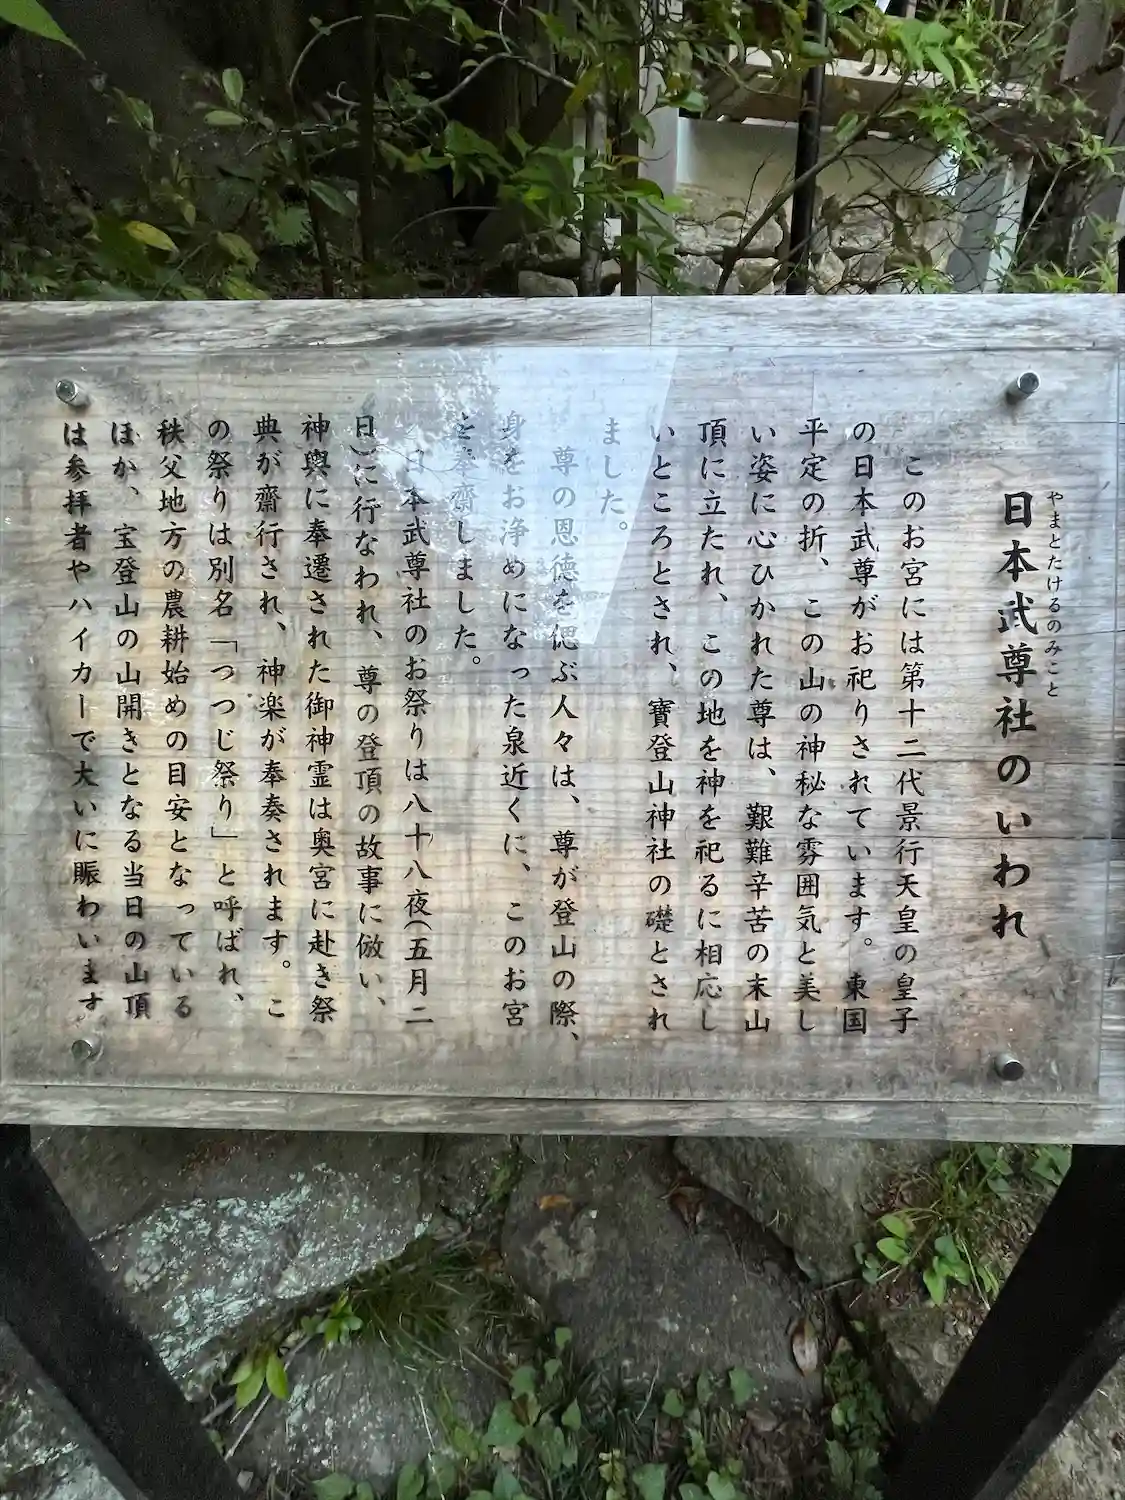 日本武尊社のいわれ
やまとたけるのみこと
このお宮には第十二代景行天皇の皇子
の日本武尊がお祀りされています。東国
平定の折、この山の神秘な雰囲気と美し
い姿に心ひかれた尊は、艱難辛苦の末山
頂に立たれ、この地を神を祀るに相応し
いところとされ、寶登山神社の礎とされ
ました。
尊の恩徳を偲ぶ人々は、尊が登山の際、
身をお浄めになった泉近くに、このお宮
を奉齋しました。
日本武尊社のお祭りは八十八夜(五月二
日)に行なわれ、尊の登頂の故事に倣い、
神輿に奉遷された御神霊は奥宮に赴き祭
典が齋行され、神楽が奉奏されます。こ
の祭りは別名「つつじ祭り」と呼ばれ、
秩父地方の農耕始めの目安となっている
ほか、宝登山の山開きとなる当日の山頂
は参拝者やハイカーで大いに賑わいます